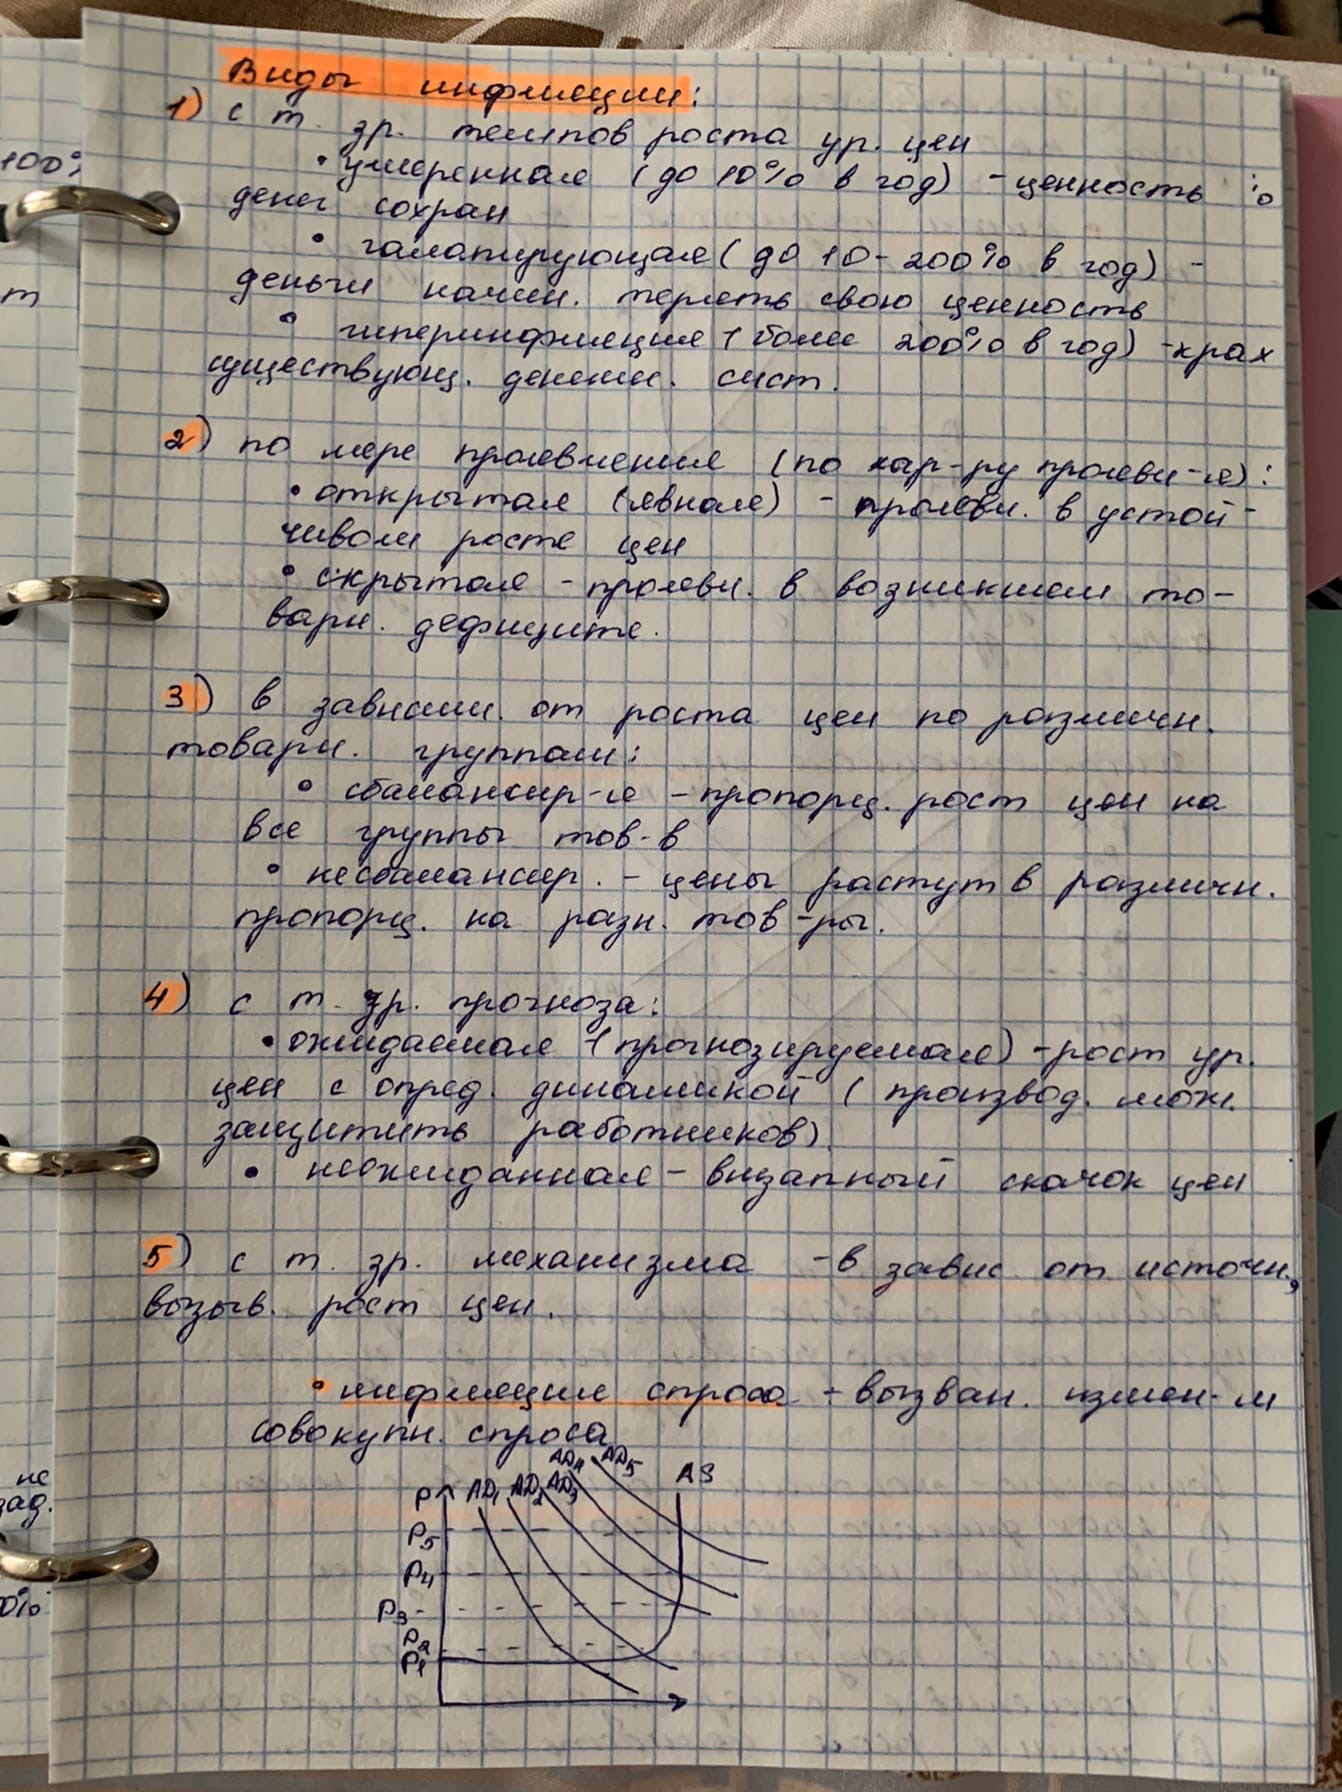 Виды инфляции:
1) с т. зр. темпов роста ур. цен
• умеренная (до 10% в год) - ценность
денег сохран
• галопирующая (до 10-200% в год) -
деньги начин. терять свою ценность
• гиперинфляция (более 200% в год) - крах
существующ. денежн. сист.
2) по мере проявления (по хар-ру проявл-я):
• открытая (явная) - проявл. в устой-
чивом росте цен
• скрытая - проявл. в возникшем то-
варн. дефиците.
3) в зависим. от роста цен по различн.
товарн. группам:
• сбалансир-я - пропорц. рост цен на
все группы тов-в
• несбалансир. - цены растут в различн.
пропорц. на разн. тов-ры.
4) с т. зр. прогноза:
• ожидаемая (прогнозируемая) - рост ур.
цен с опред. динамикой (производ. мож.
защитить работников)
• неожиданная - внзапный скачок цен
5) с т. зр. механизма - в завис от источн,
вызыв. рост цен.
• инфляция спроса - вызван. измен-м
совокупн. спроса
P AD1 AD2 AD3 AD4 AD5 AS
P5
P4
P3
P2
P1
100%
т
не
зад.
0%